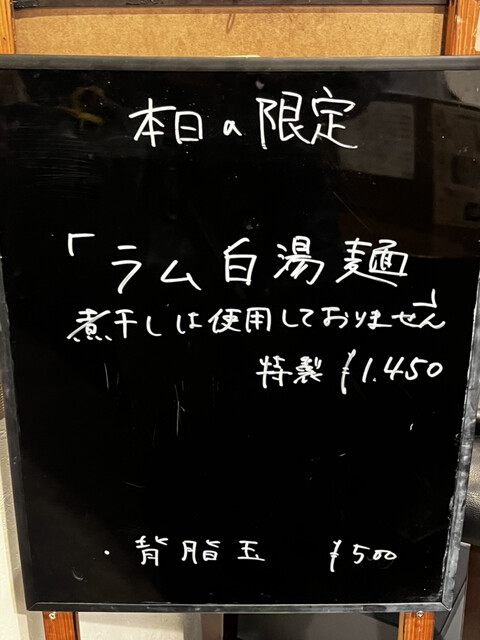 本日の限定
「ラム白湯麺」
煮干しは使用しておりません
特製 ¥1.450
・背脂玉 ¥500